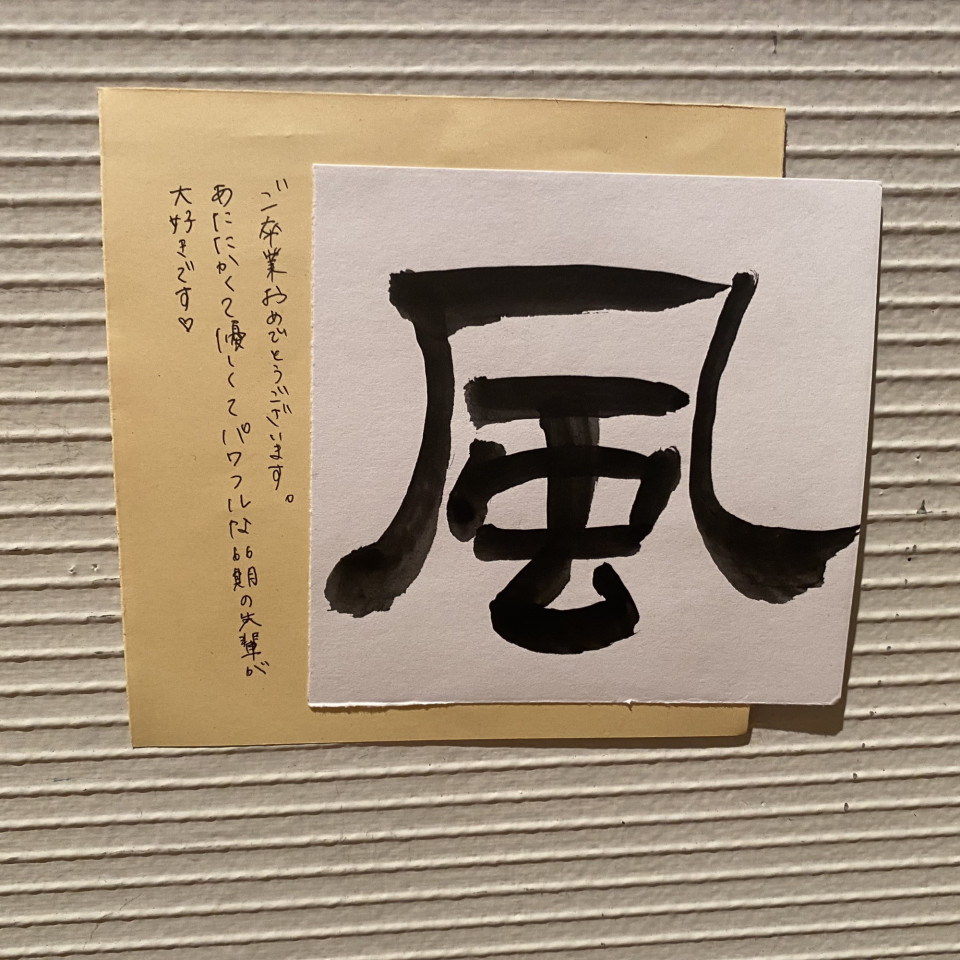 風
ご卒業おめでとうございます。
あたたかくて優しくてパワフルな66期の先輩が
大好きです♡